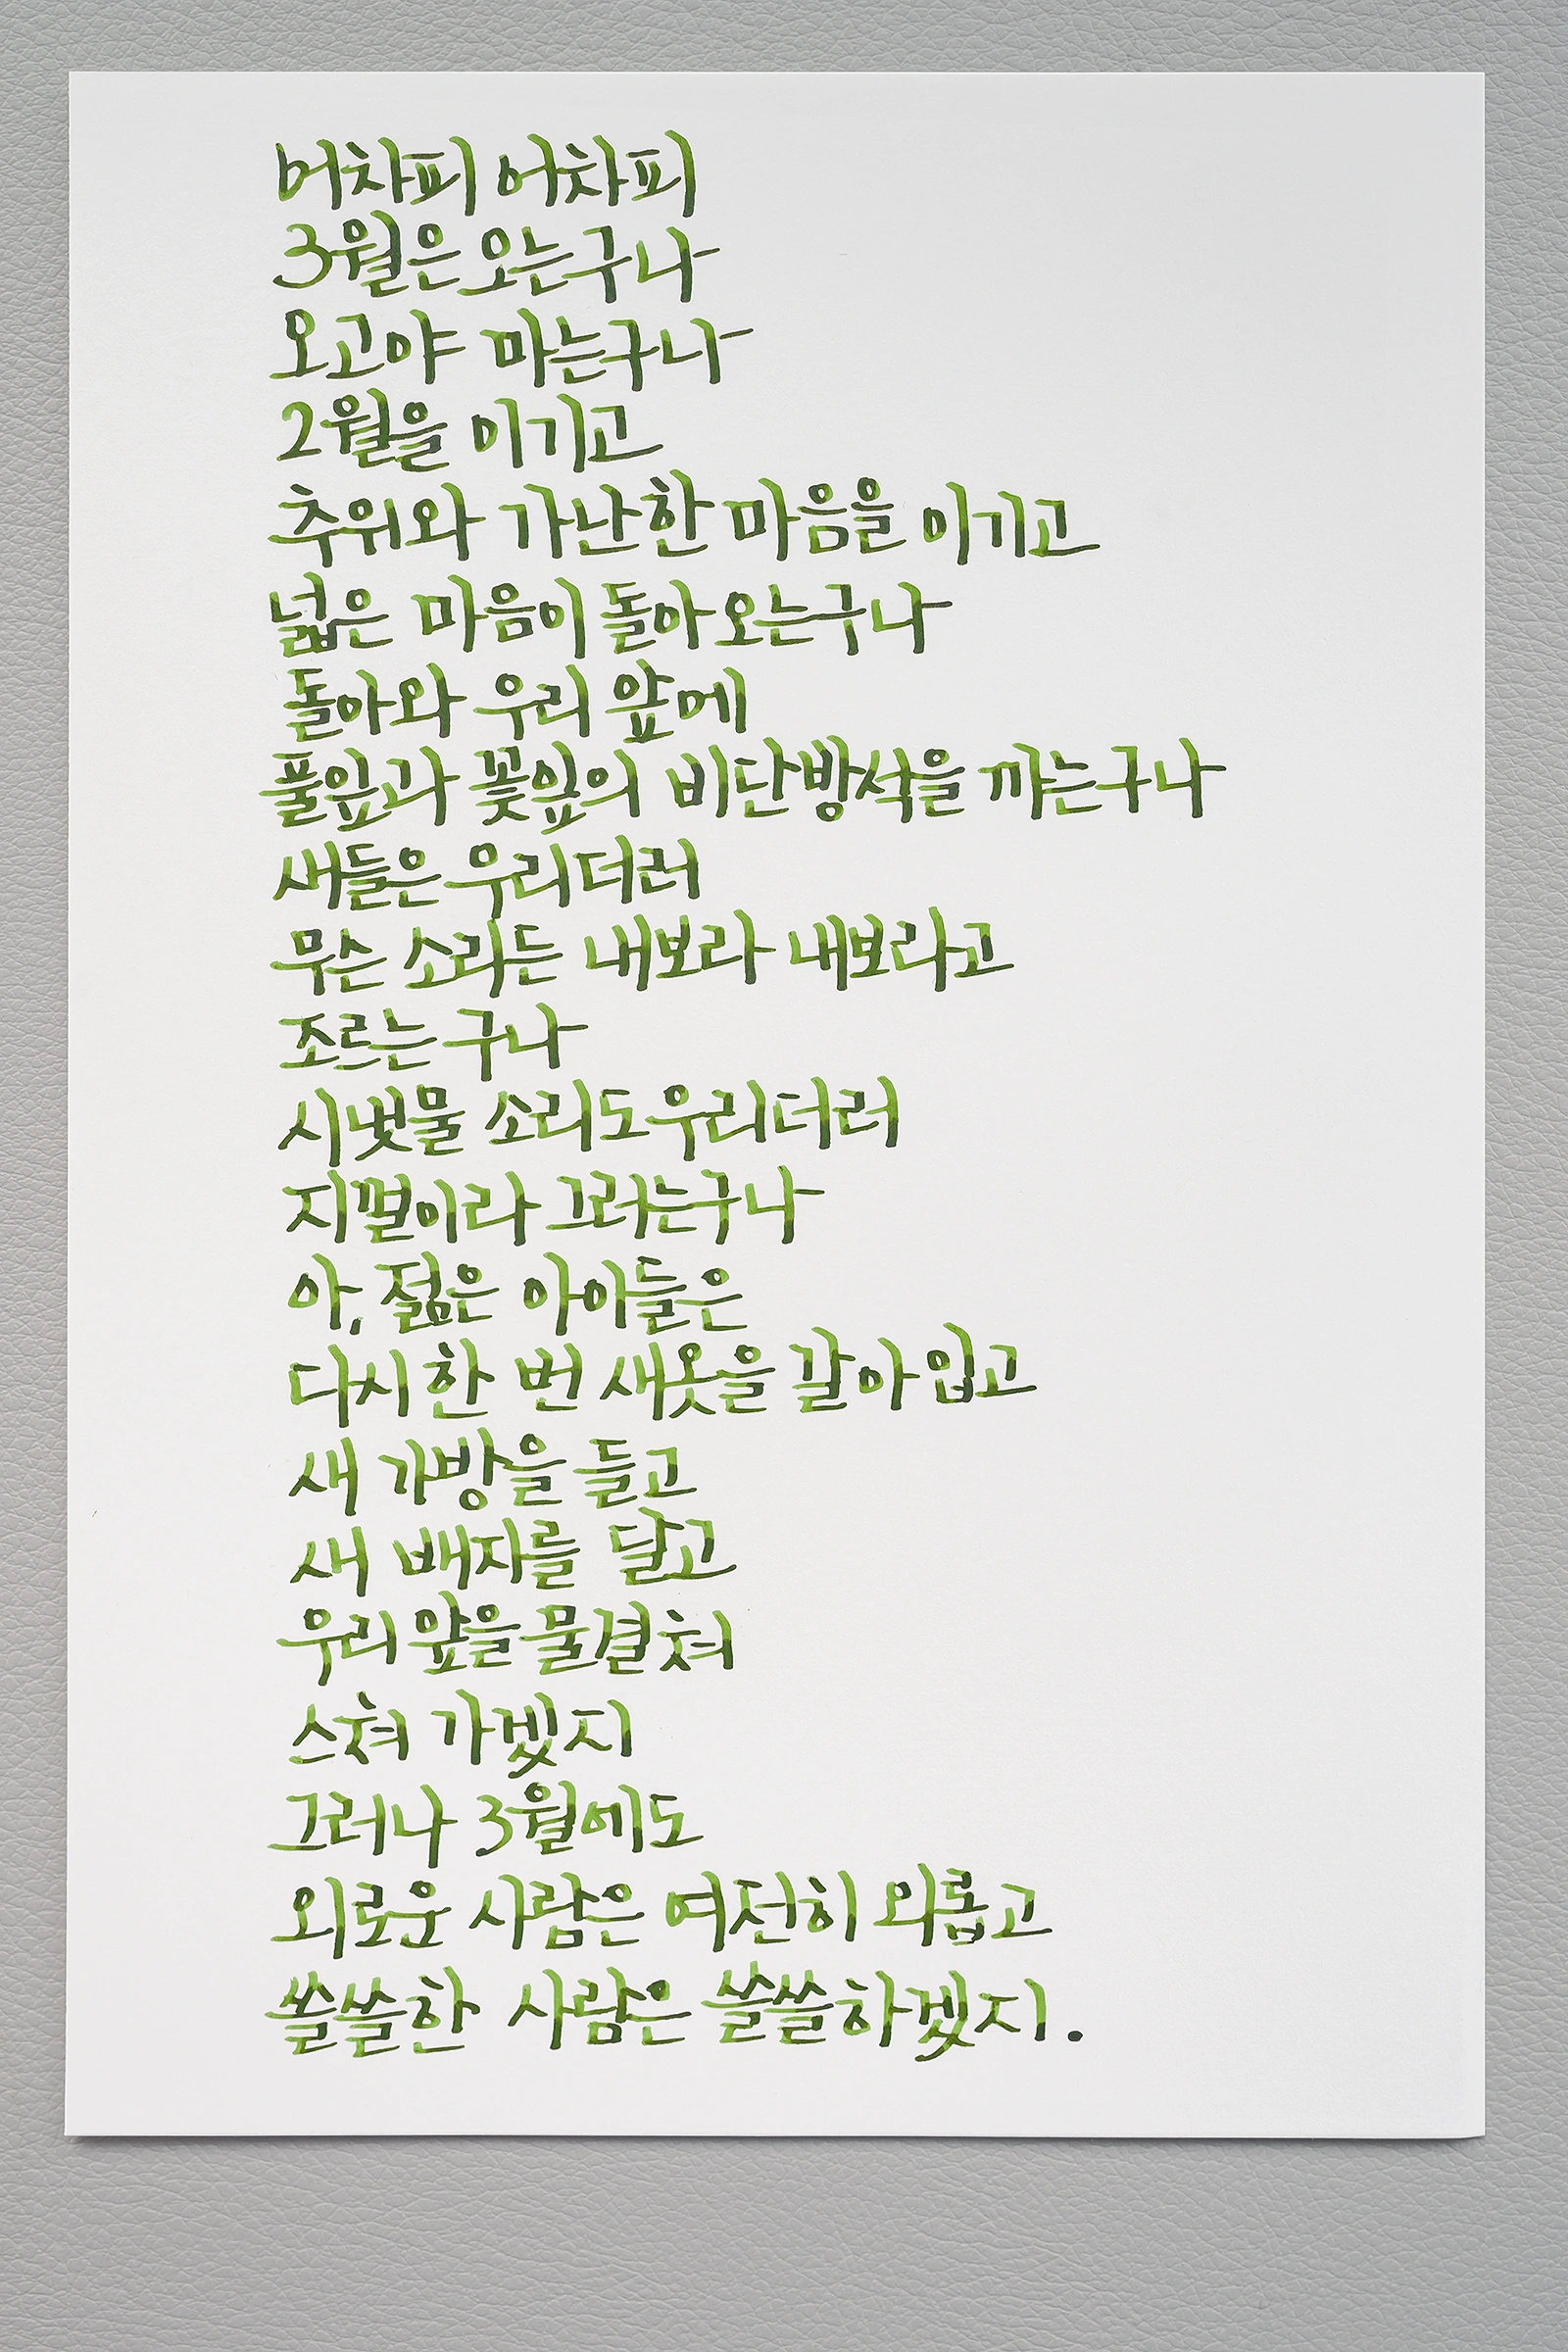 어차피 어차피
3월은 오는구나
오고야 마는구나
2월을 이기고
추위와 가난한 마음을 이기고
넓은 마음이 돌아오는구나
돌아와 우리 앞에
풀잎과 꽃잎의 비단방석을 까는구나
새들은 우리더러
무슨 소리든 내보라 내보라고
조르는구나
시냇물 소리도 우리더러
지껄이라 그러는구나
아, 젊은 아이들은
다시 한 번 새옷을 갈아입고
새 가방을 들고
새 배지를 달고
우리 앞을 물결쳐
스쳐 가겠지
그러나 3월에도
외로운 사람은 여전히 외롭고
쓸쓸한 사람은 쓸쓸하겠지.